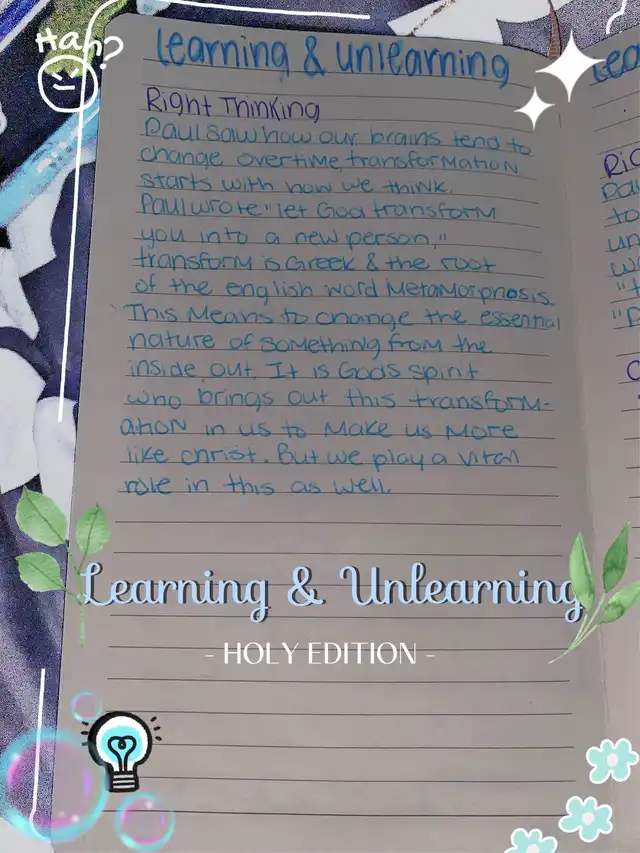 Hah?
learning & unlearning
Right Thinking
Paul saw how our brains tend to
change overtime, transformation
starts with how we think.
Paul wrote "let God transform
you into a new person,"
transform is Greek & the root
of the english word Metamorphosis.
This Means to change the essential
nature of something from the
inside out. It is Gods spirit
who brings out this transform-
ation in us to Make us More
like christ. But we play a vital
role in this as well.
Learning & Unlearning
- HOLY EDITION -